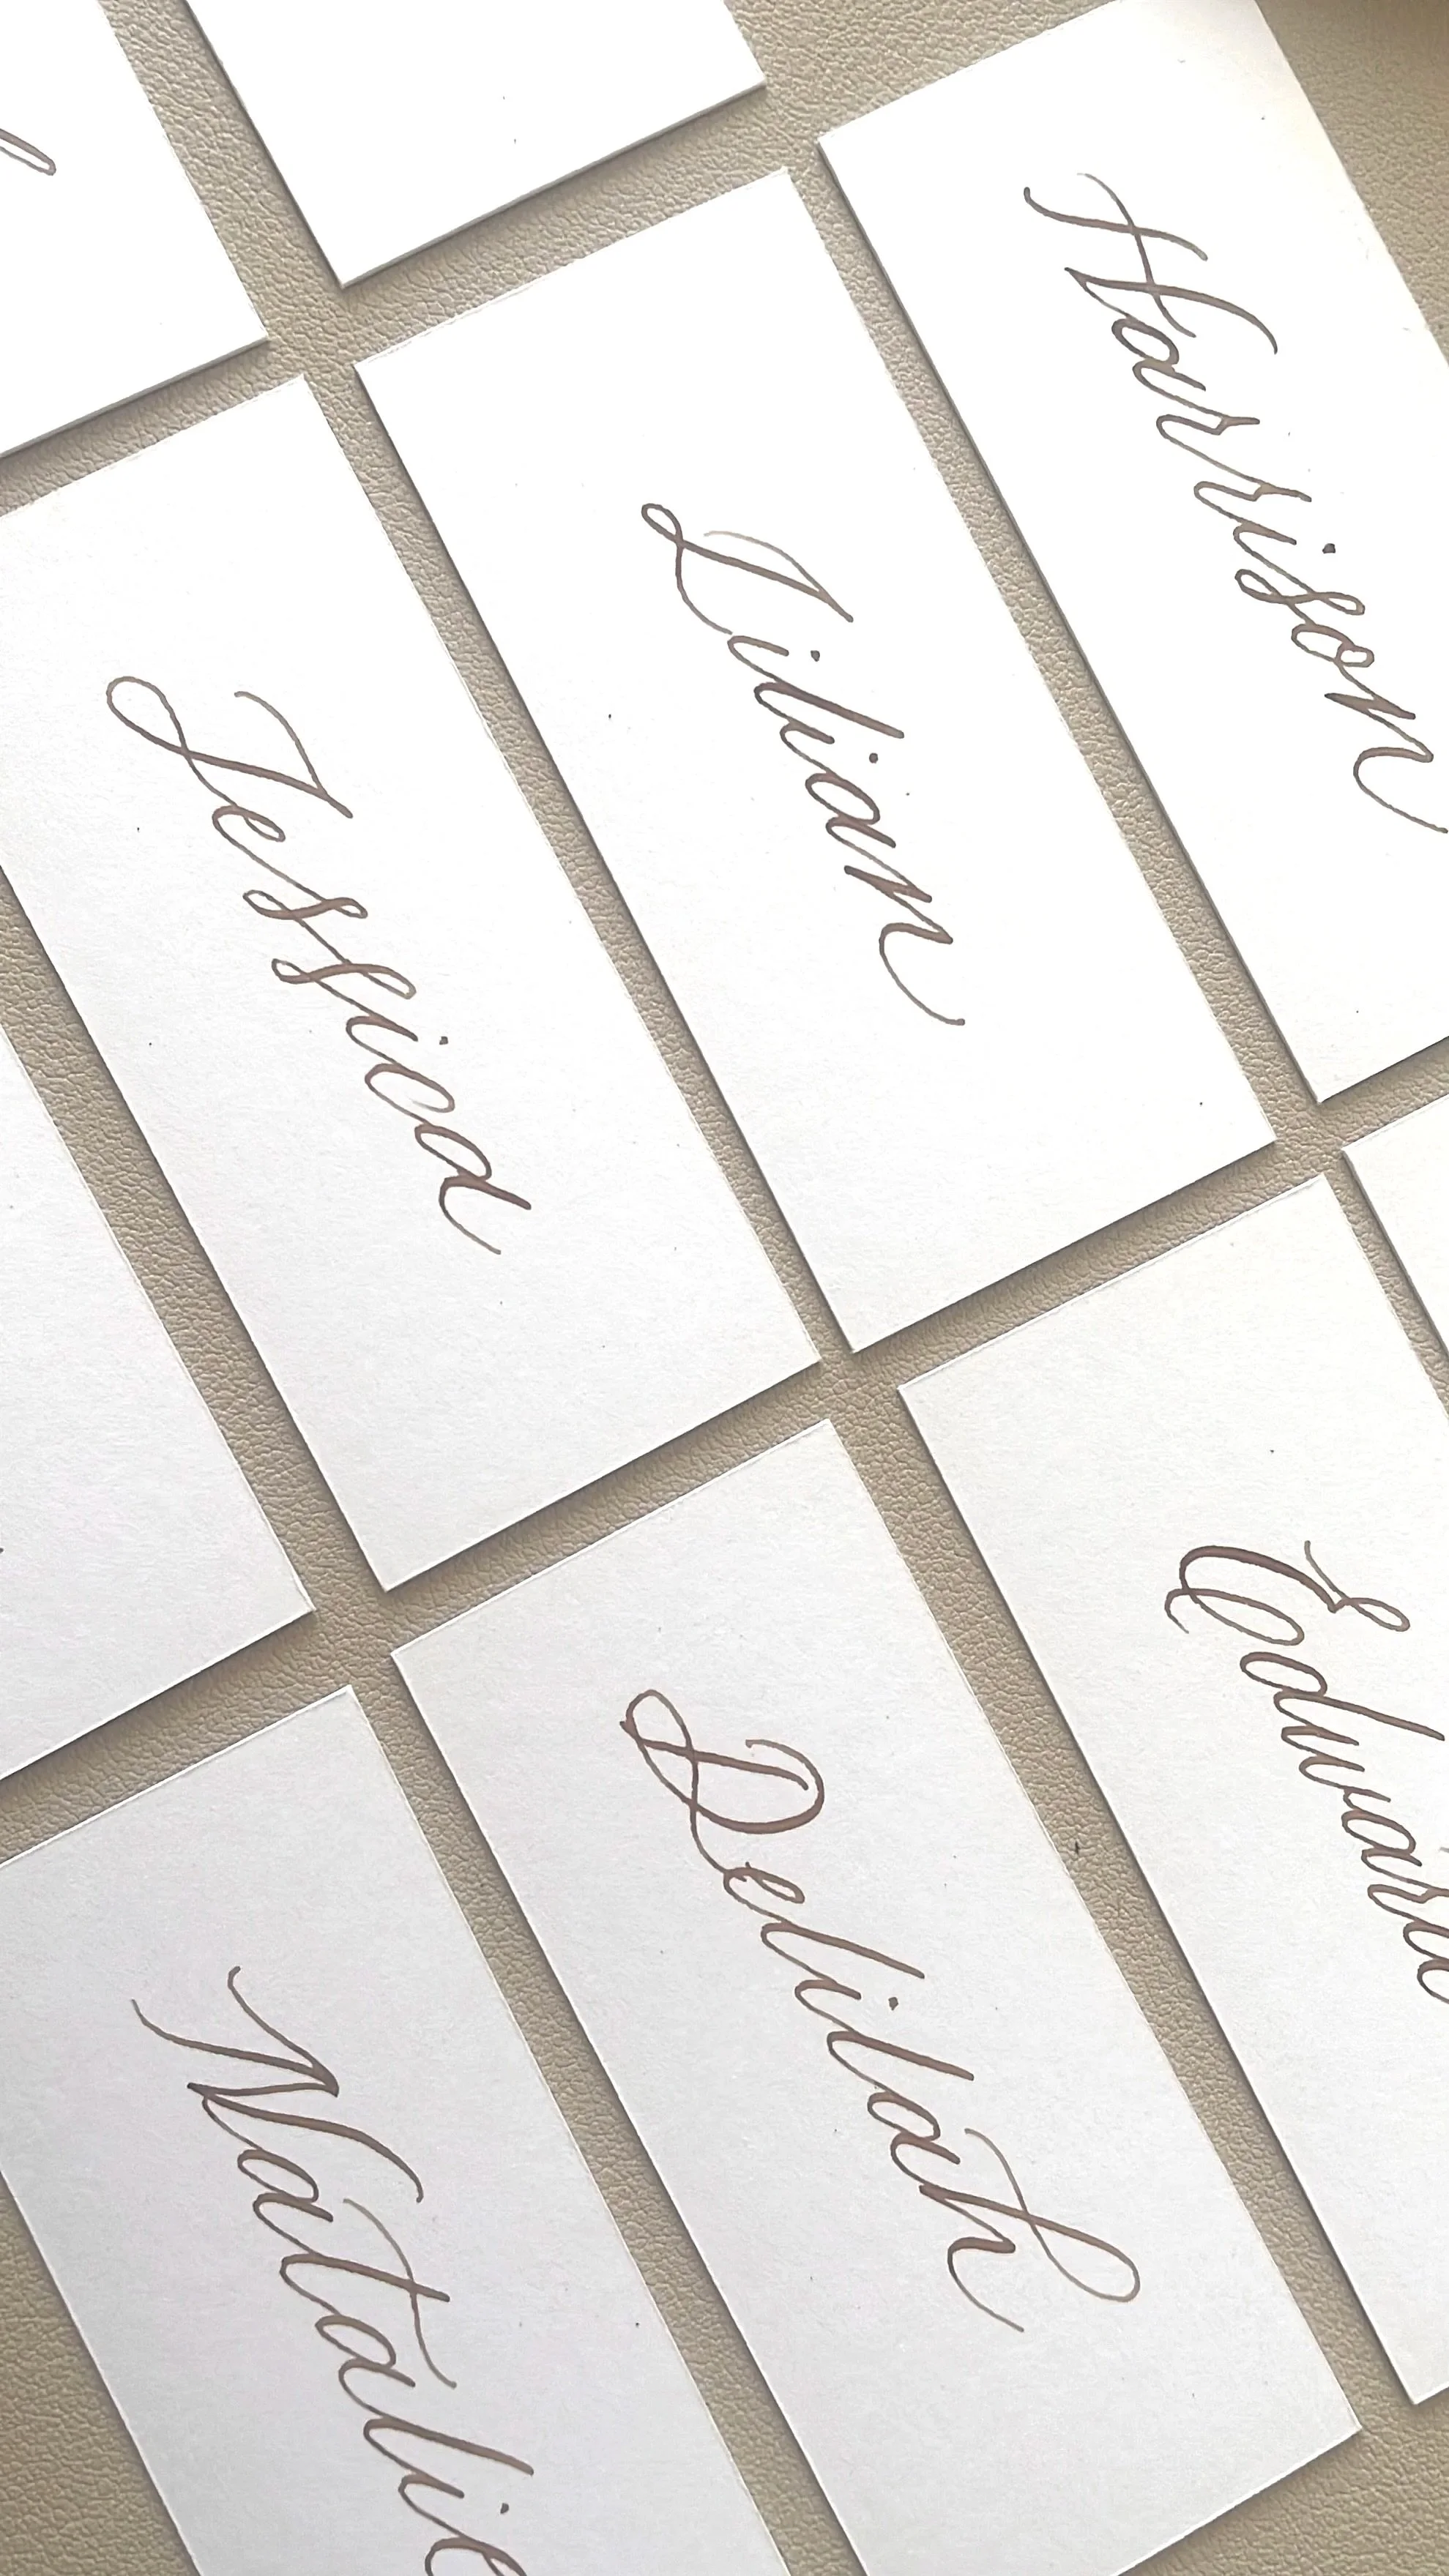 Harrison
Lilian
Edward
Jessica
Delilah
Natalie